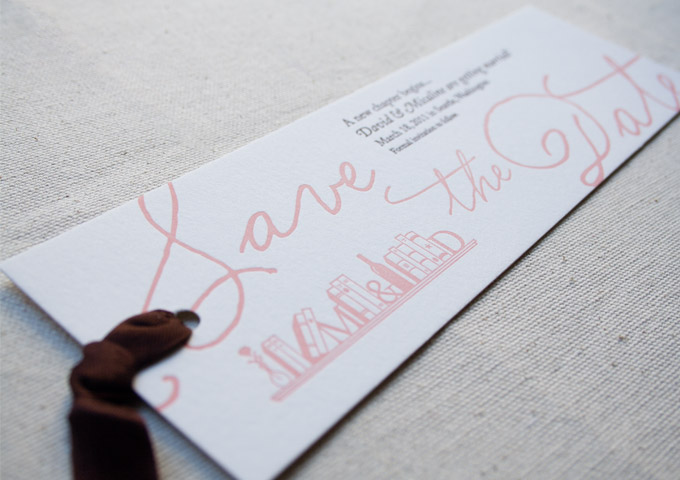 A new chapter begins...
David & Micaline are getting married!
March 18, 2011 in Seattle, Washington
Formal invitation to follow
Save the Date
M & D